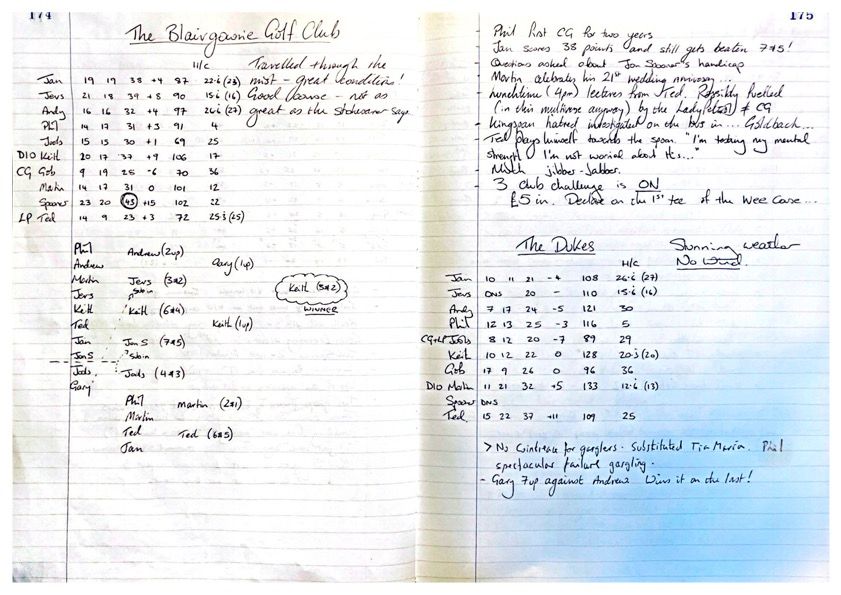 174
The Blairgowrie Golf Club
H/C
Travelled through the
mist - great conditions!
Good course - not as
great as the Stokwaner Says
Jan 19 19 38 +4 87 22.6 (23)
Jevs 21 18 39 +8 90 15.6 (16)
Andy 16 16 32 +4 97 26.6 (27)
Phil 14 17 31 +3 91 4
Jods 15 15 30 +1 69 25
D10 Keith 20 17 37 +9 106 17
CG Gob 9 19 28 -6 70 36
Martin 14 17 31 0 101 12
Spooner 23 20 43 +15 102 22
LP Ted 14 9 23 +3 72 25.6 (25)
Phil
Andrew (2up)
Andrew
Gary (1up)
Martin
Jevs (3&2)
Jevs
Keith
Keith (6&4)
Ted
Keith (1up)
Keith (3&2)
WINNER
Jan
Jon S (7&5)
Jon S
Jods
Jods (4&3)
Gary
Phil
Martin (2&1)
Martin
Ted
Ted (6&5)
Jan
175
Phil first CG for two years
Jan scores 38 points and still gets beaten 7&5!
Questions asked about Jon Spooner's handicap
Martin celebrates his 21st wedding anniversary...
- Lunchtime (4pm) lectures from Ted. Possibly fuelled
(in this multiverse anyway) by the Lady & CG
- Kingspan hatred investigated on the bus in... Goldback...
Ted plays himself towards the spoon. "I'm testing my mental
strength. I'm not worried about it..."
- Much jibber-Jabber.
- 3 club challenge is ON
£5 in. Declare on the 1st tee of the Wee Course...
The Dukes
Stunning weather
No wind.
H/C
Jan 10 11 21 -4 108 26.6 (27)
Jevs DNS 20 - 110 15.6 (16)
Andy 7 17 24 -5 121 30
Phil 12 13 25 -3 116 5
CG+LP Jods 8 12 20 -7 89 29
Keith 10 12 22 0 128 20.3 (20)
Gob 17 9 26 0 96 36
D10 Martin 11 21 32 +5 133 12.6 (13)
Spooner DNS
Ted 15 22 37 +11 109 25
> No Cointreau for garglers. Substituted Tia Maria. Phil
spectacular failure gargling.
- Gary 7up against Andrew. Wins it on the last!